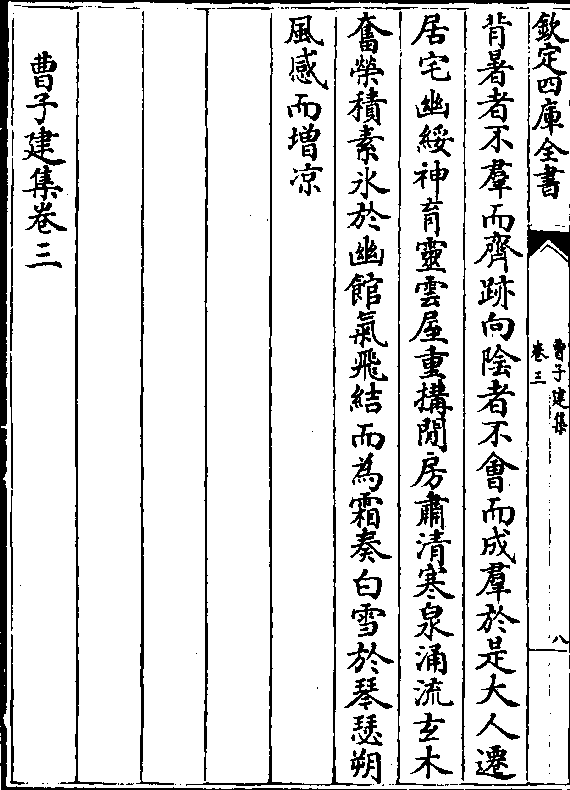 欽定四庫全書
曹子建集
卷三
八
背暑者不羣而齊跡向陰者不會而成羣於是大人遷
居宅幽綏神育靈雲屋重搆閒房肅清寒泉涌流玄木
奮榮積素氷於幽館氣飛結而為霜奏白雪於琴瑟朔
風感而增凉
曹子建集卷三